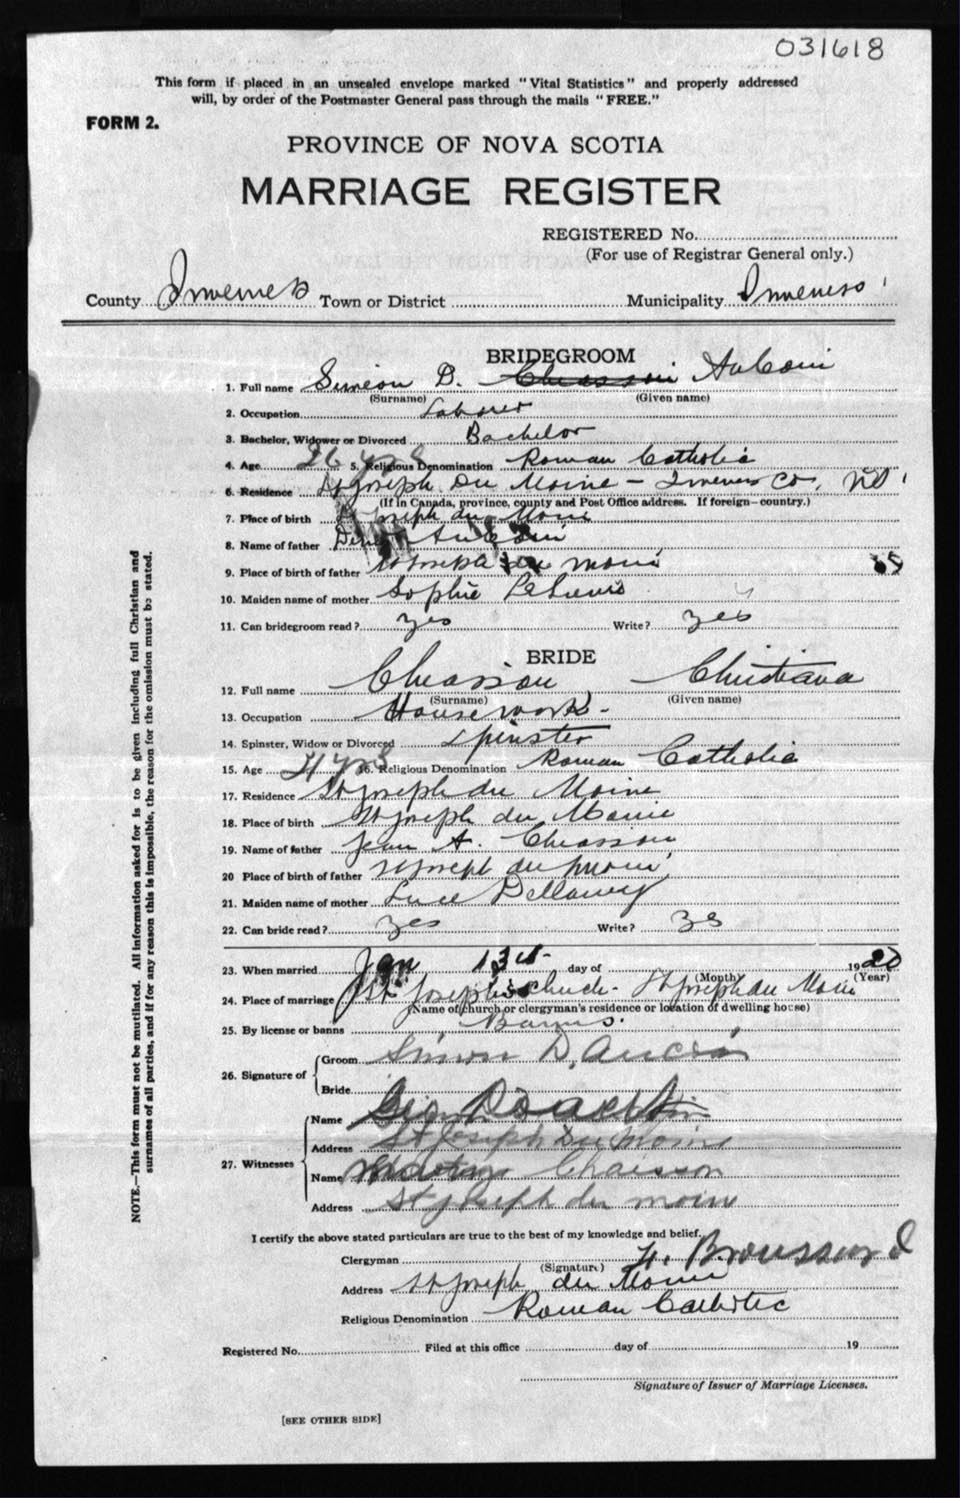 031618
This form if placed in an unsealed envelope marked "Vital Statistics" and properly addressed
will, by order of the Postmaster General pass through the mails "FREE."
FORM 2.
PROVINCE OF NOVA SCOTIA
MARRIAGE REGISTER
REGISTERED No.
(For use of Registrar General only.)
County Inverness Town or District Municipality Inverness
BRIDEGROOM
1. Full name Simeon D. Chiasson AuCoin
(Surname) (Given name)
2. Occupation Laborer
3. Bachelor, Widower or Divorced Bachelor
4. Age 26 yrs 5. Religious Denomination Roman Catholic
6. Residence St Joseph Du Moine - Inverness Co, N.S.
(If in Canada, province, county and Post Office address. If foreign—country.)
7. Place of birth St Joseph du Moine
8. Name of father AuCoin
9. Place of birth of father St Joseph du Moine
10. Maiden name of mother Sophie
11. Can bridegroom read? yes Write? yes
BRIDE
12. Full name Chiasson Christiana
(Surname) (Given name)
13. Occupation Housework -
14. Spinster, Widow or Divorced Spinster
15. Age yrs 16. Religious Denomination Roman Catholic
17. Residence St Joseph du Moine
18. Place of birth St Joseph du Moine
19. Name of father Jean A. Chiasson
20 Place of birth of father St Joseph du Moine
21. Maiden name of mother Luce
22. Can bride read? yes Write? yes
23. When married Jan 13th day of 1920
(Month) (Year)
24. Place of marriage St Joseph's Church - St Joseph du Moine
(Name of church or clergyman's residence or location of dwelling house)
25. By license or banns Banns.
26. Signature of Groom Simon D. Aucoin
Bride
27. Witnesses Name
Address St Joseph Du Moine
Name Chaisson
Address St Joseph du Moine
I certify the above stated particulars are true to the best of my knowledge and belief.
Clergyman Broussard
(Signature)
Address St Joseph du Moine
Religious Denomination Roman Catholic
Registered No. Filed at this office day of 19
Signature of Issuer of Marriage Licenses.
[SEE OTHER SIDE]
NOTE.—This form must not be mutilated. All information asked for is to be given including full Christian and
surnames of all parties, and if for any reason this is impossible, the reason for the omission must be stated.